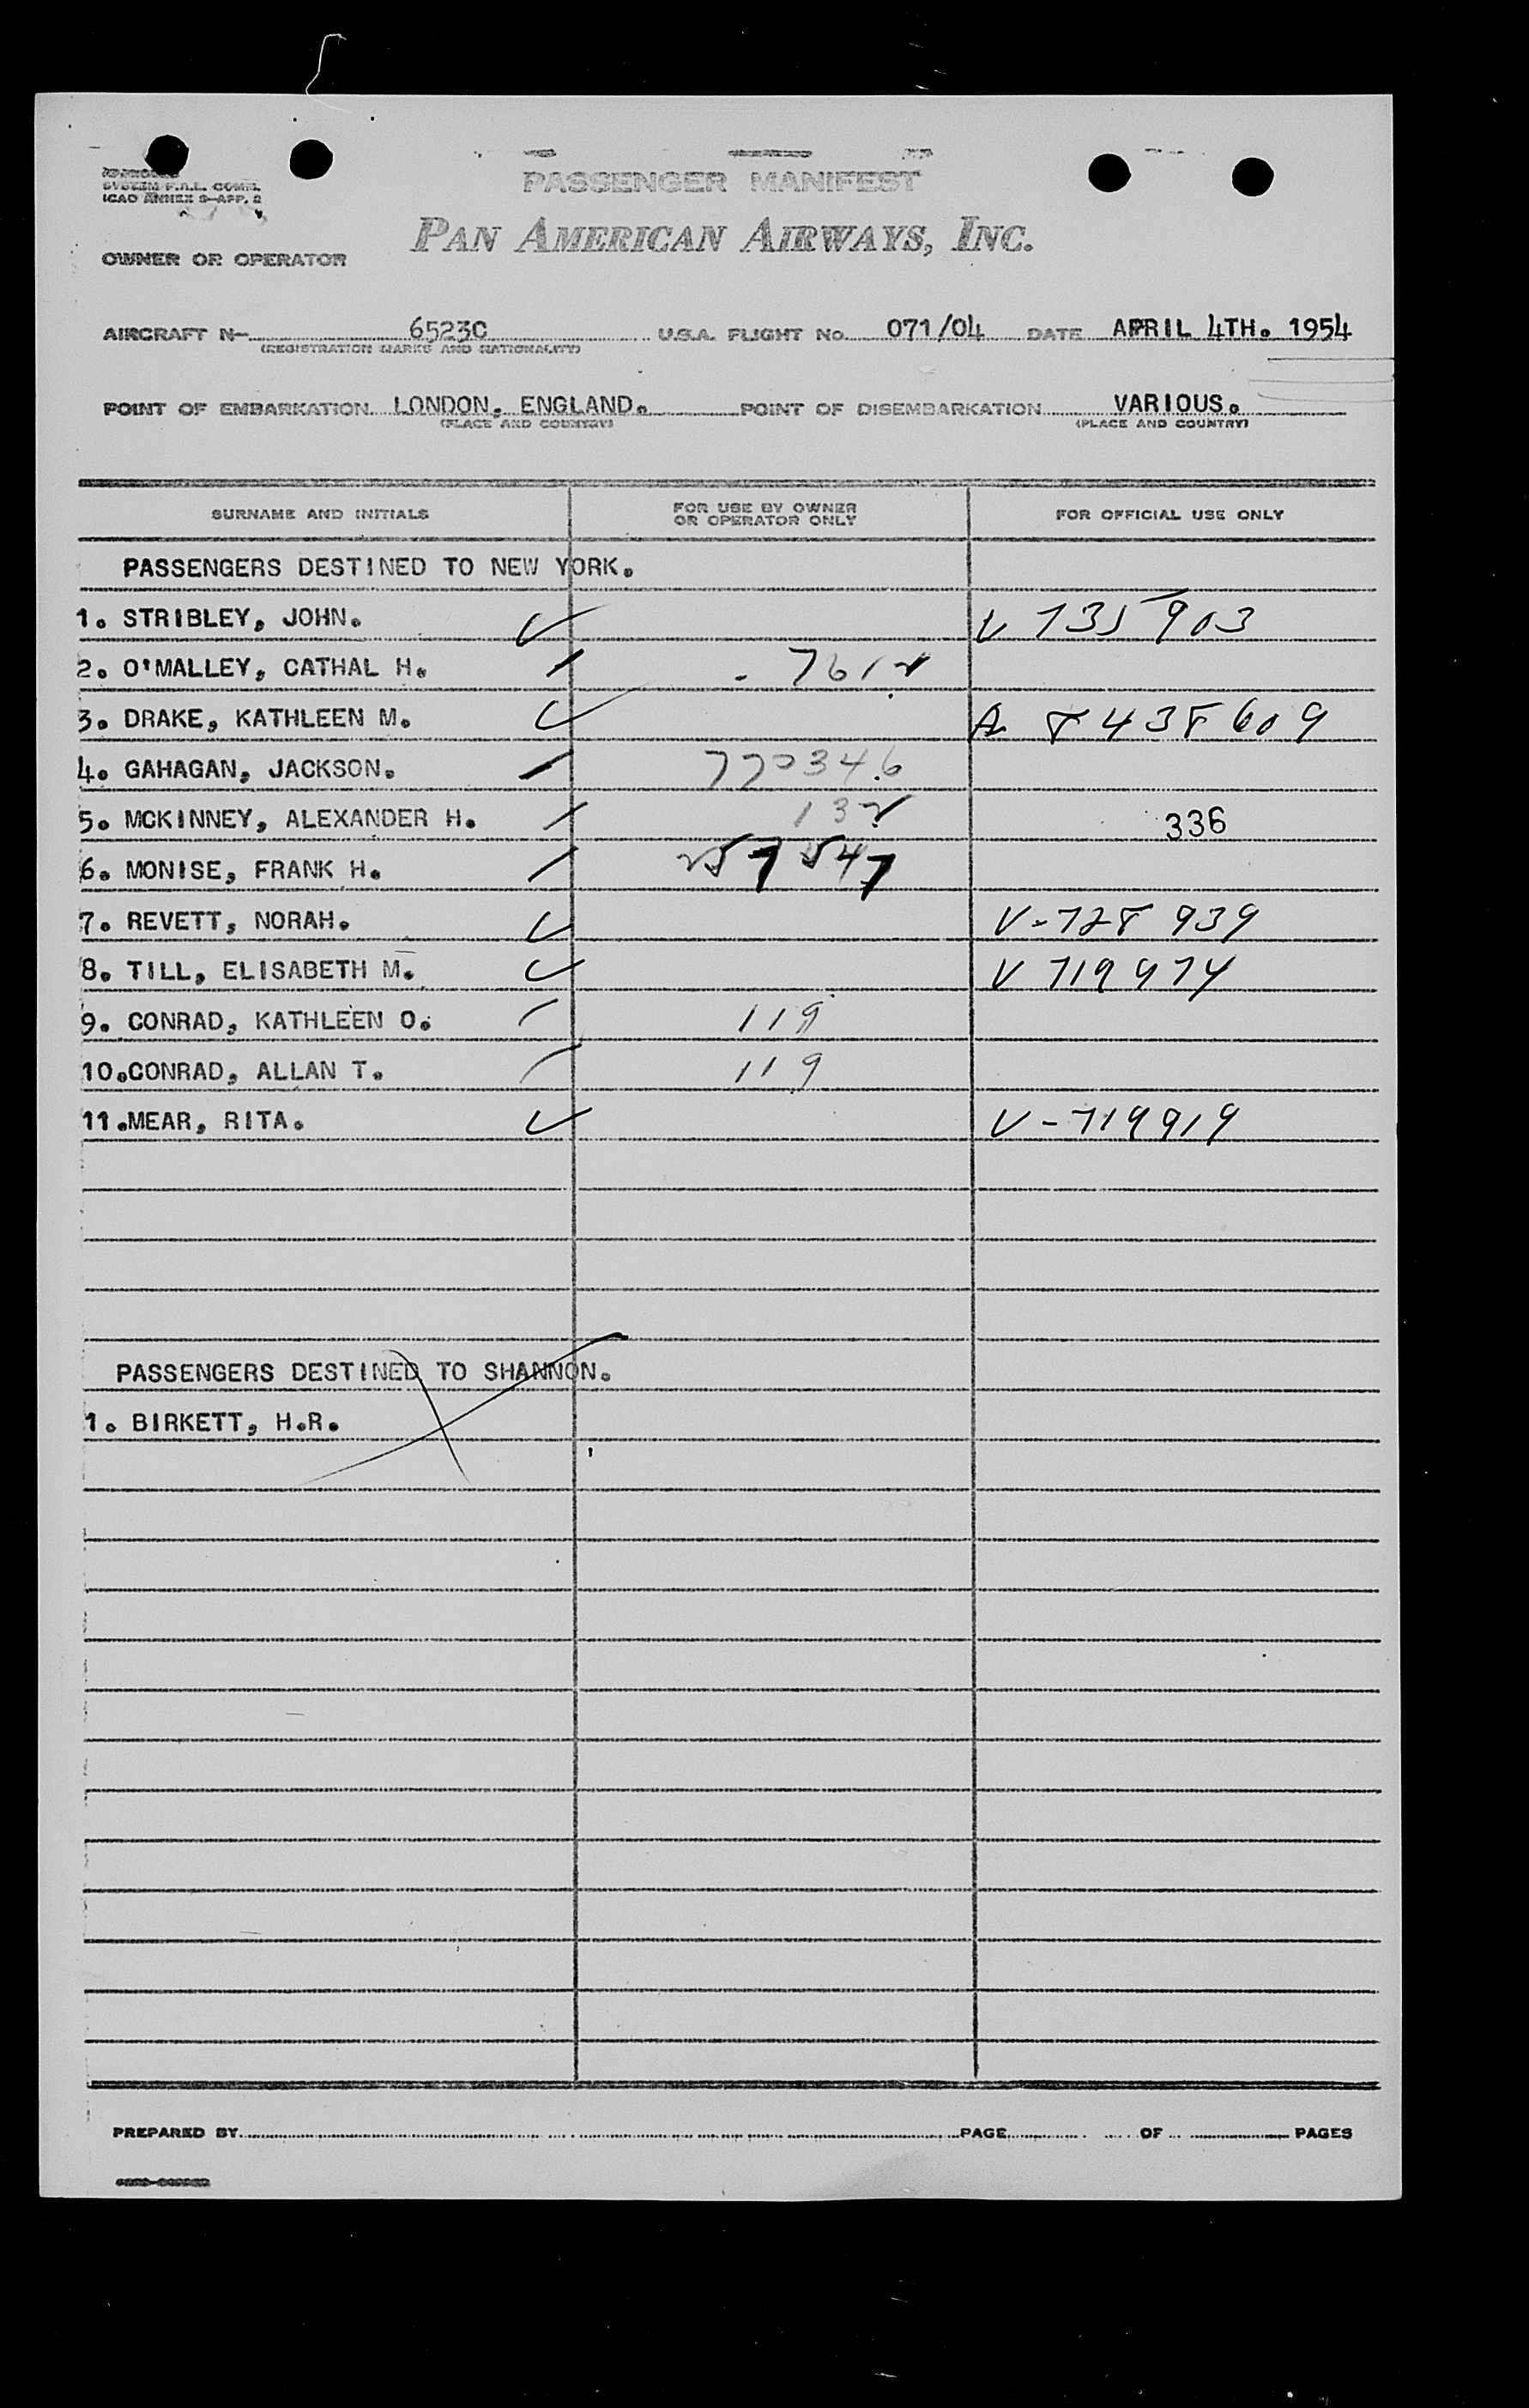 SYSTEM F.A.L. COMM.
ICAO ANNEX 9—APP. 2
PASSENGER MANIFEST
PAN AMERICAN AIRWAYS, INC.
OWNER OR OPERATOR
AIRCRAFT N- 6523C U.S.A. FLIGHT No. 071/04 DATE APRIL 4TH. 1954
(REGISTRATION MARKS AND NATIONALITY)
POINT OF EMBARKATION LONDON, ENGLAND. POINT OF DISEMBARKATION VARIOUS.
(PLACE AND COUNTRY) (PLACE AND COUNTRY)
SURNAME AND INITIALS FOR USE BY OWNER OR OPERATOR ONLY FOR OFFICIAL USE ONLY
PASSENGERS DESTINED TO NEW YORK.
1. STRIBLEY, JOHN. V 735903
2. O'MALLEY, CATHAL H. - 7612
3. DRAKE, KATHLEEN M. A 8438609
4. GAHAGAN, JACKSON. 770346
5. MCKINNEY, ALEXANDER H. 132 336
6. MONISE, FRANK H. 257547
7. REVETT, NORAH. V-728 939
8. TILL, ELISABETH M. V 719974
9. CONRAD, KATHLEEN O. 119
10. CONRAD, ALLAN T. 119
11. MEAR, RITA. V-719919
PASSENGERS DESTINED TO SHANNON.
1. BIRKETT, H.R.
PREPARED BY PAGE OF PAGES